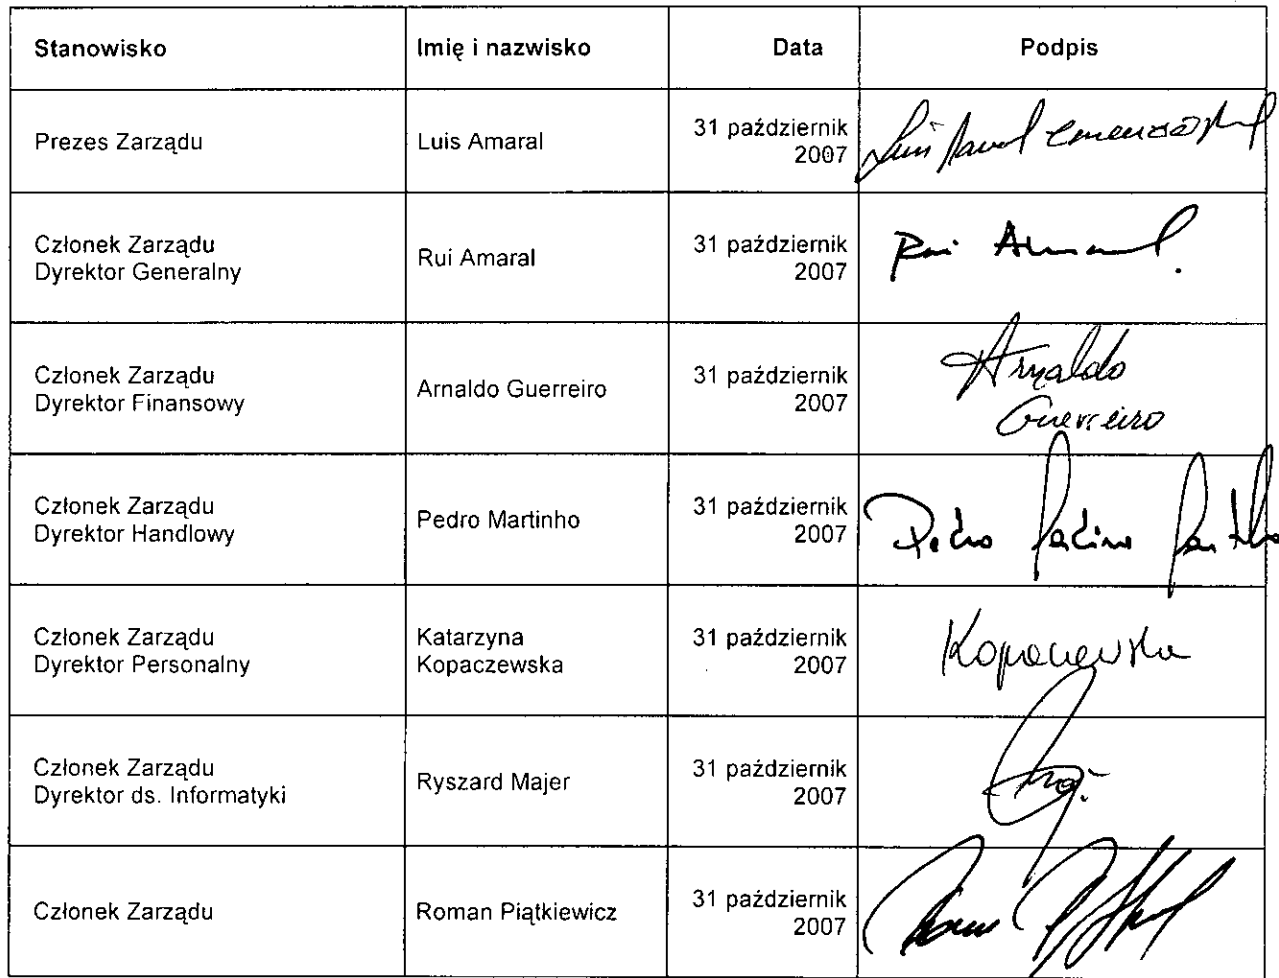 Stanowisko Imię i nazwisko Data Podpis
Prezes Zarządu Luis Amaral 31 październik
2007
Członek Zarządu
Dyrektor Generalny Rui Amaral 31 październik
2007 Rui Amaral.
Członek Zarządu
Dyrektor Finansowy Arnaldo Guerreiro 31 październik
2007 Arnaldo
Guerreiro
Członek Zarządu
Dyrektor Handlowy Pedro Martinho 31 październik
2007 Pedro
Członek Zarządu
Dyrektor Personalny Katarzyna
Kopaczewska 31 październik
2007 Kopaczewska
Członek Zarządu
Dyrektor ds. Informatyki Ryszard Majer 31 październik
2007
Członek Zarządu Roman Piątkiewicz 31 październik
2007